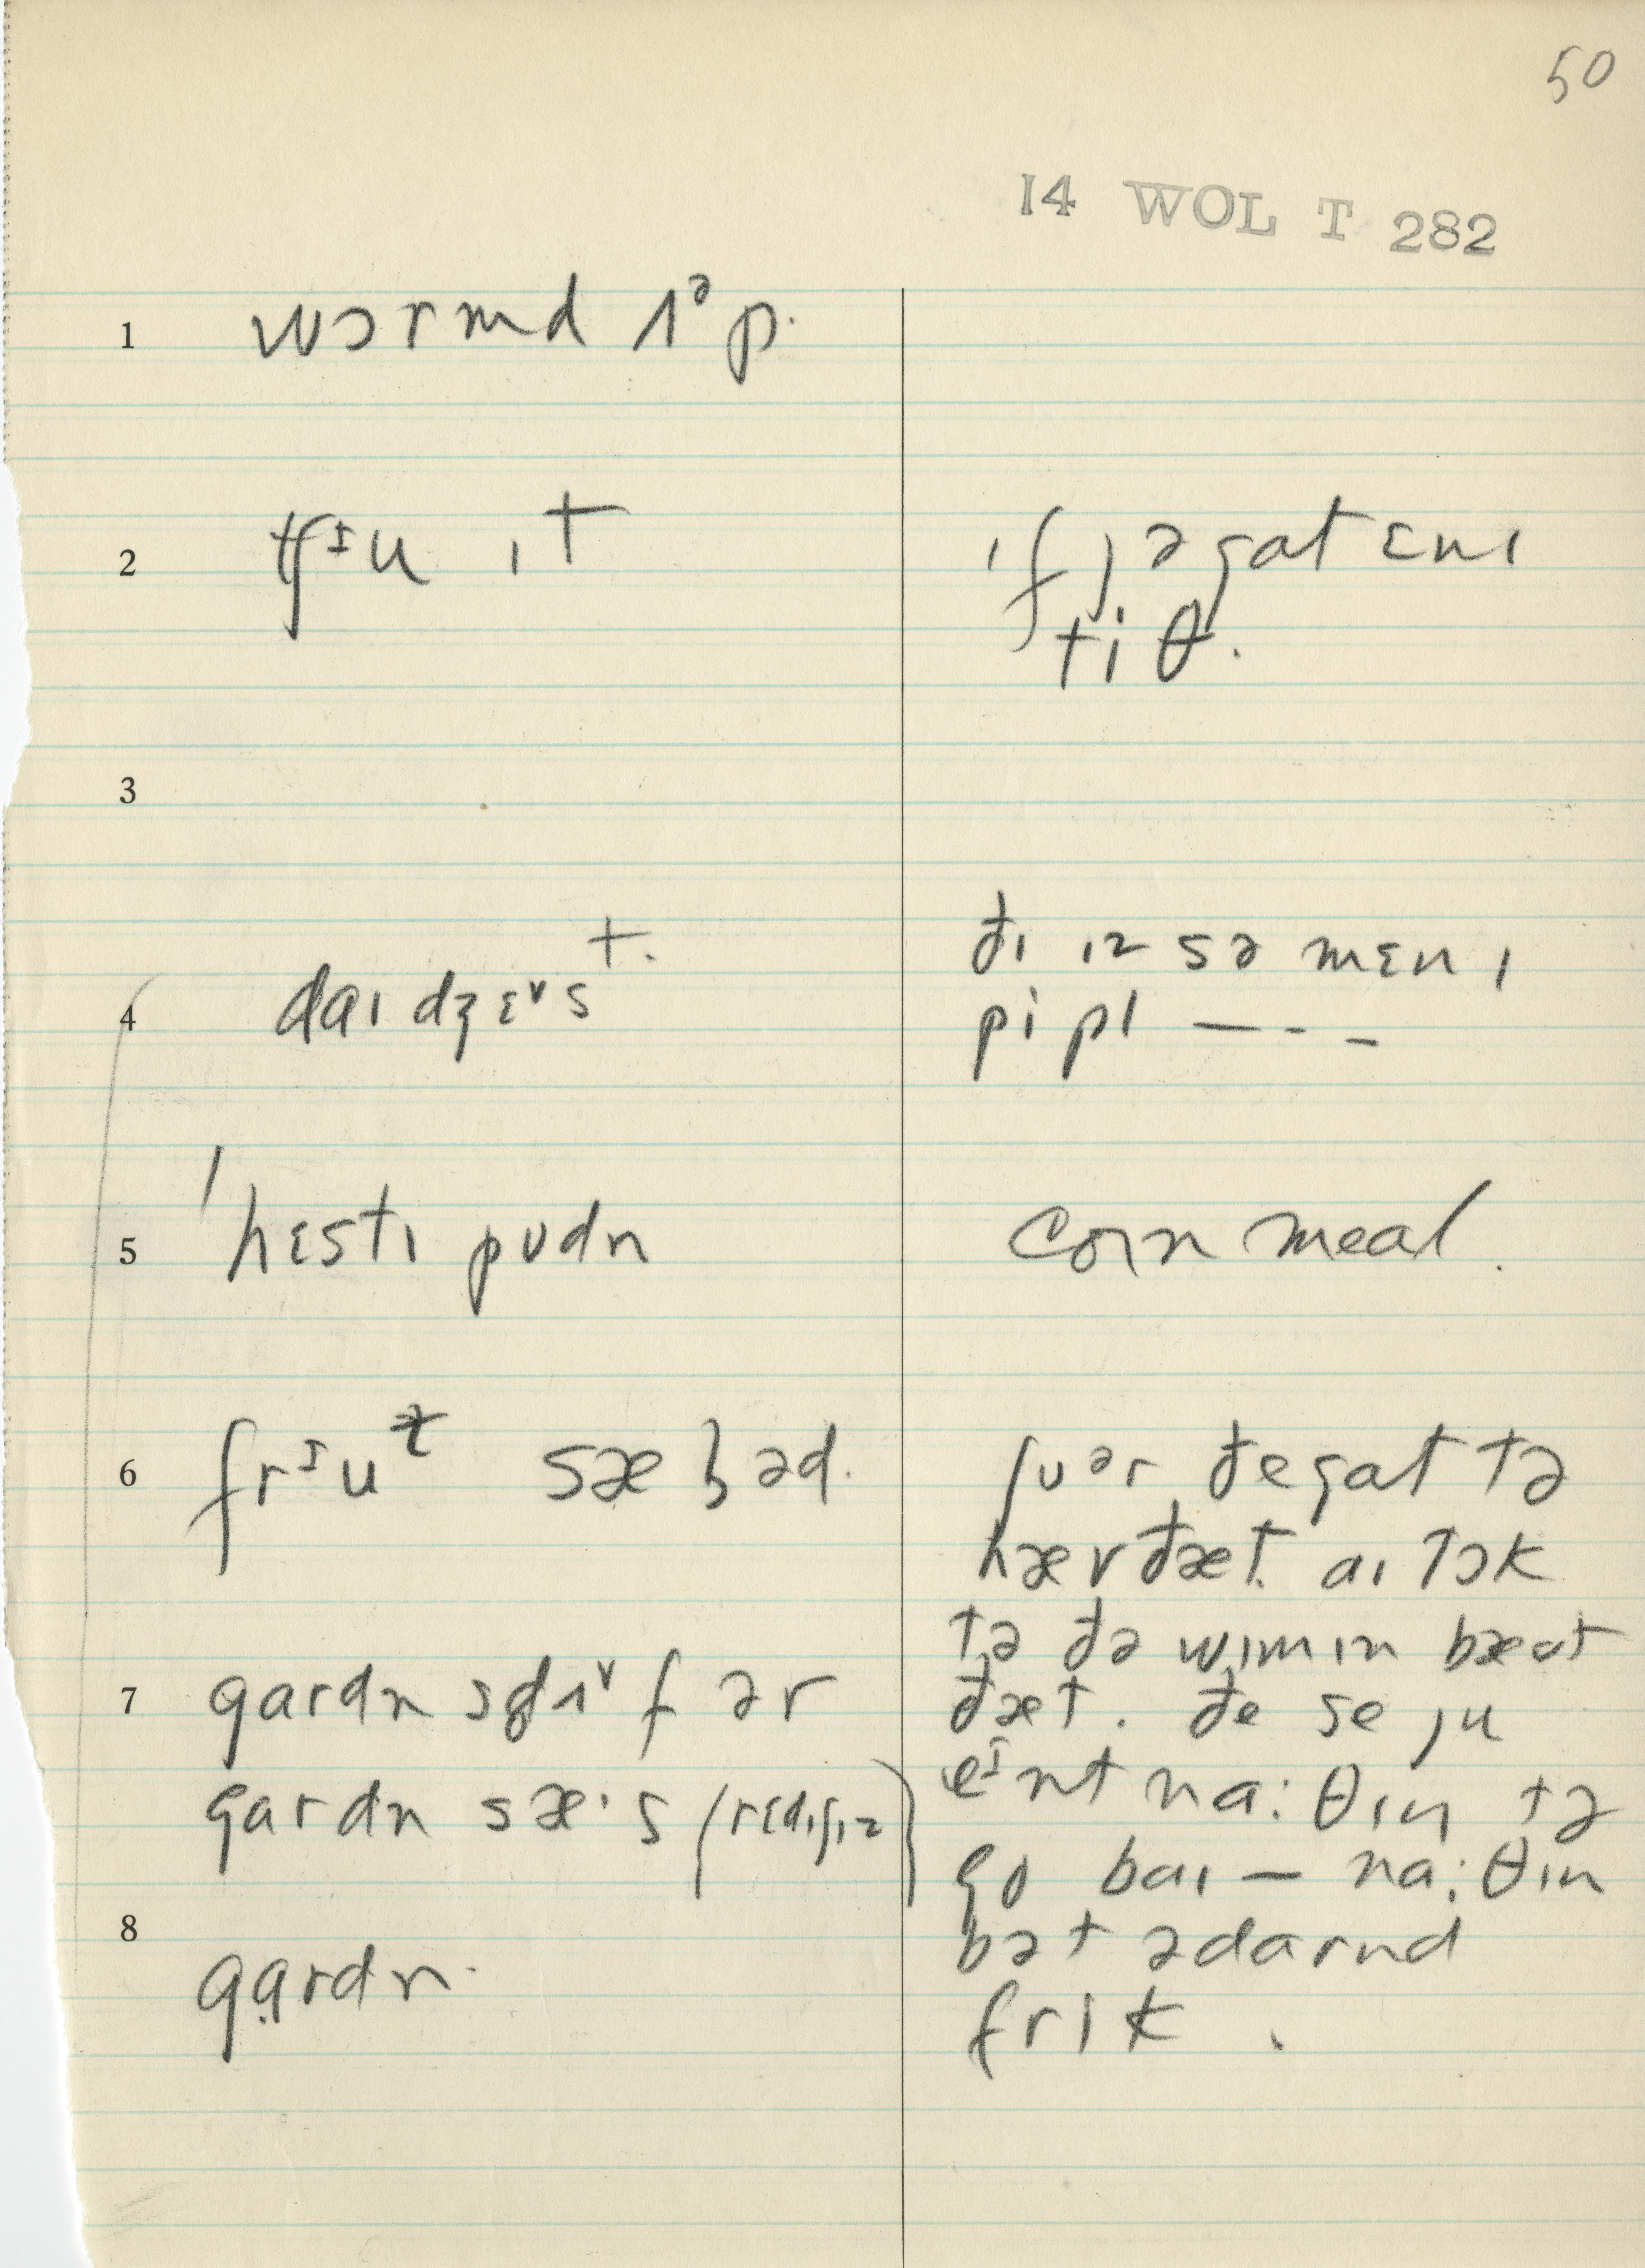 50
14 WOL T 282
1 wɔrmd ʌᵊp.
2 tʃᶦu ıt
ıf jə gat ɛnı
tiθ.
3
4 daıdʒɛ˅st.
ðı ız sə mɛnı
pipl — - -
5 'hɛstı pʊdn
corn meal.
6 frᶦut sæ
ʃʊᵊr ðe gat tə
hæv ðæt. aı tɔk
tə ðə wımın bæʊt
ðæt. ðe se ju
eᶦnt na:θıŋ tə
go baı — na:θın
bət ədarnd
frık.
7 gardn ʌ˅f ər
gardn sæ·s (rɛdıʃız)
8 gardn.